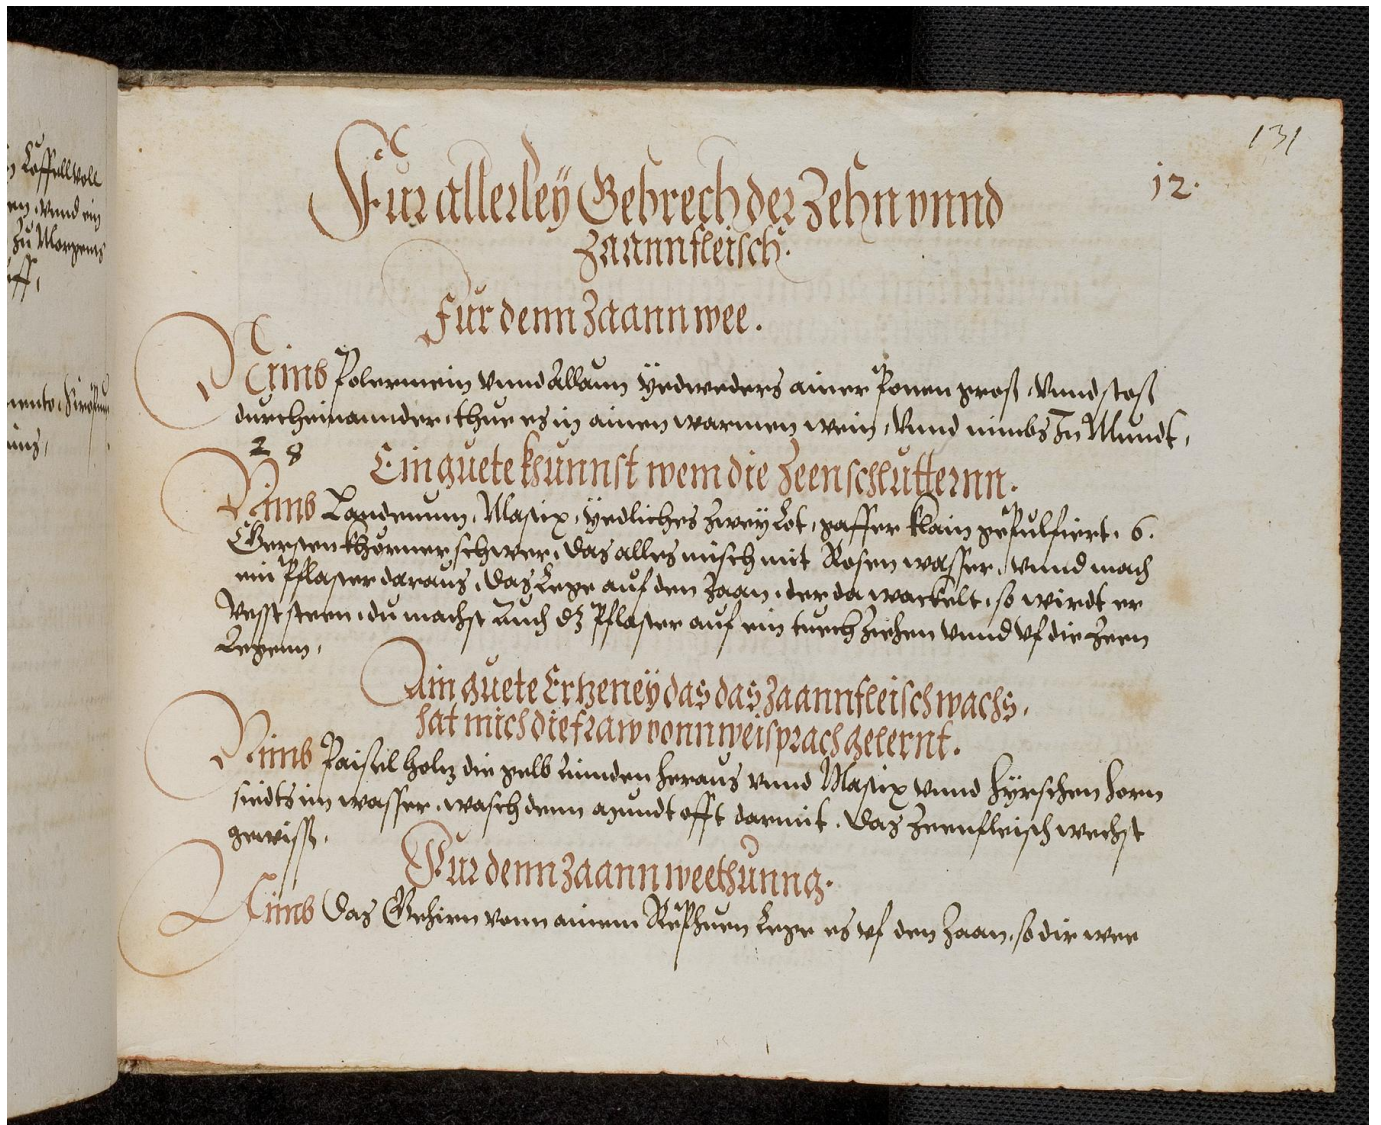 131
12.
Fur allerley Gebrech der Zehn vnnd
Zaannfleisch.
Fur denn Zaann wee.
Nimb Polermein vnnd Allaun yedweders ainer Ponen gross, vnnd stoss
durcheinannder, thue es in ainen warmen wein, vnnd nimbs Zu Mundt,
2 8
Ein guete khunnst wem die Zeen schlutternn.
Nimb Laudenum, Mastix, yedliches Zwey Lot, saffer klain gepulfiert, 6.
Gersten khörner schwer, das alles misch mit Rosen wasser, vnnd mach
ein Pflaster daraus, das Lege auf den Zaan, der da wackelt, so wirdt er
Vesst steen, du machst auch dz Pflaster auf ein tuech Ziehen vnnd vf die Zeen
Legenn,
Ain guete Ertzeney das das Zaannfleisch wachs.
hat mich die fraw vonn weisprach gelernt.
Nimb Paisel holtz die gelb Rinnden heraus vnnd Mastix vnnd hyrschen horn
siedts im wasser, wasch denn mundt offt darmit. Das Zeenfleisch wechst
gewiss,
Fur denn Zaann weethunng.
Nimb Das Gehirn vonn ainem Rephuen Lege es vf den Zaan, so dir wee
Löffell voll
vnnd ein
Zu Morgens